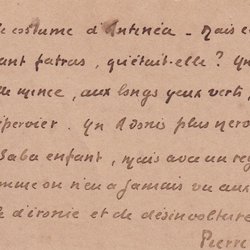 e costume d'Antinéa - Mais c
ant fatras, qu'était-elle? Un
e mince, aux longs yeux verts,
épervier. Un Adonis plus nerv
Saba enfant, mais avec un reg
omme on n'en a jamais vu aux
d'ironie et de désinvolture
Pierre